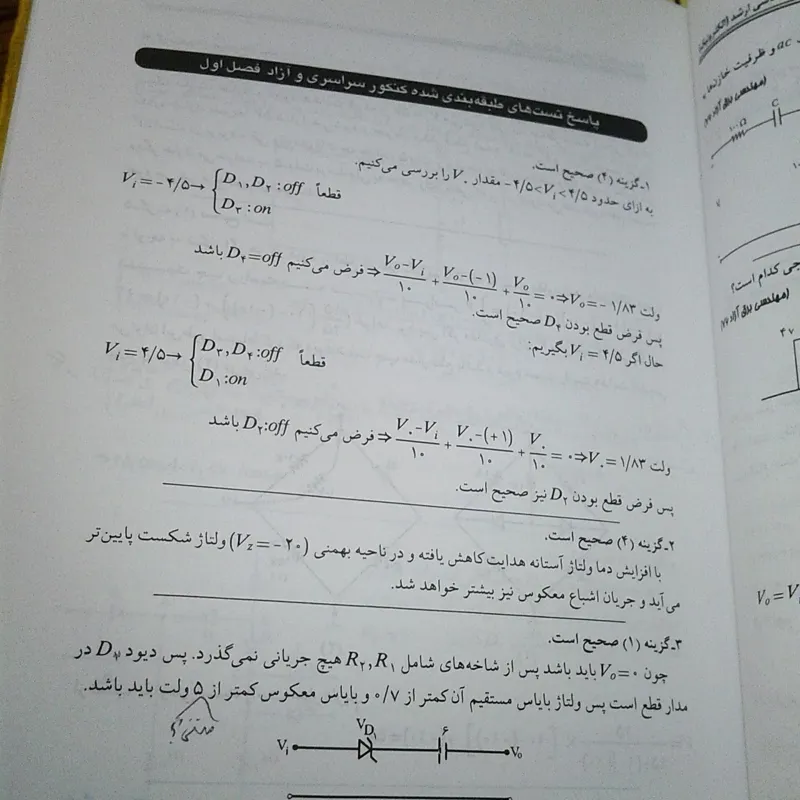 پاسخ تست‌های طبقه‌بندی شده کنکور سراسری و آزاد فصل اول
۱ـ گزینه (۲) صحیح است.
به ازای حدود ۴/۵>Vi>-۴/۵ مقدار V۰ را بررسی می‌کنیم.
Vi=-۴/۵→ {D۱,D۲ : off
D۳ : on قطعاً
فرض می‌کنیم D۴=off باشد ⇒ (Vo-Vi)/۱۰ + (Vo-(-۱))/۱۰ + Vo/۱۰ = ۰ ⇒ Vo = -۱/۸۳ ولت
پس فرض قطع بودن D۴ صحیح است.
حال اگر Vi = ۴/۵ بگیریم:
Vi=۴/۵→ {D۳,D۴ :off
D۱:on قطعاً
فرض می‌کنیم D۲:off باشد ⇒ (V۰-Vi)/۱۰ + (V۰-(+۱))/۱۰ + V۰/۱۰ = ۰ ⇒ V۰ = ۱/۸۳ ولت
پس فرض قطع بودن D۲ نیز صحیح است.
۲ـ گزینه (۴) صحیح است.
با افزایش دما ولتاژ آستانه هدایت کاهش یافته و در ناحیه بهمنی (Vz=-۲۰) ولتاژ شکست پایین‌تر
می‌آید و جریان اشباع معکوس نیز بیشتر خواهد شد.
۳ـ گزینه (۱) صحیح است.
چون Vo=۰ باید باشد پس از شاخه‌های شامل R۲,R۱ هیچ جریانی نمی‌گذرد. پس دیود D۱ در
مدار قطع است پس ولتاژ بایاس مستقیم آن کمتر از ۰/۷ و بایاس معکوس کمتر از ۵ ولت باید باشد.
VD۱
۶
Vi
Vo
ac و ظرفیت خازن‌ها
(مهندسی برق آزاد
C
۱۰۰Ω
جی کدام است؟
(مهندسی برق آزاد
۴۷
Vo=V